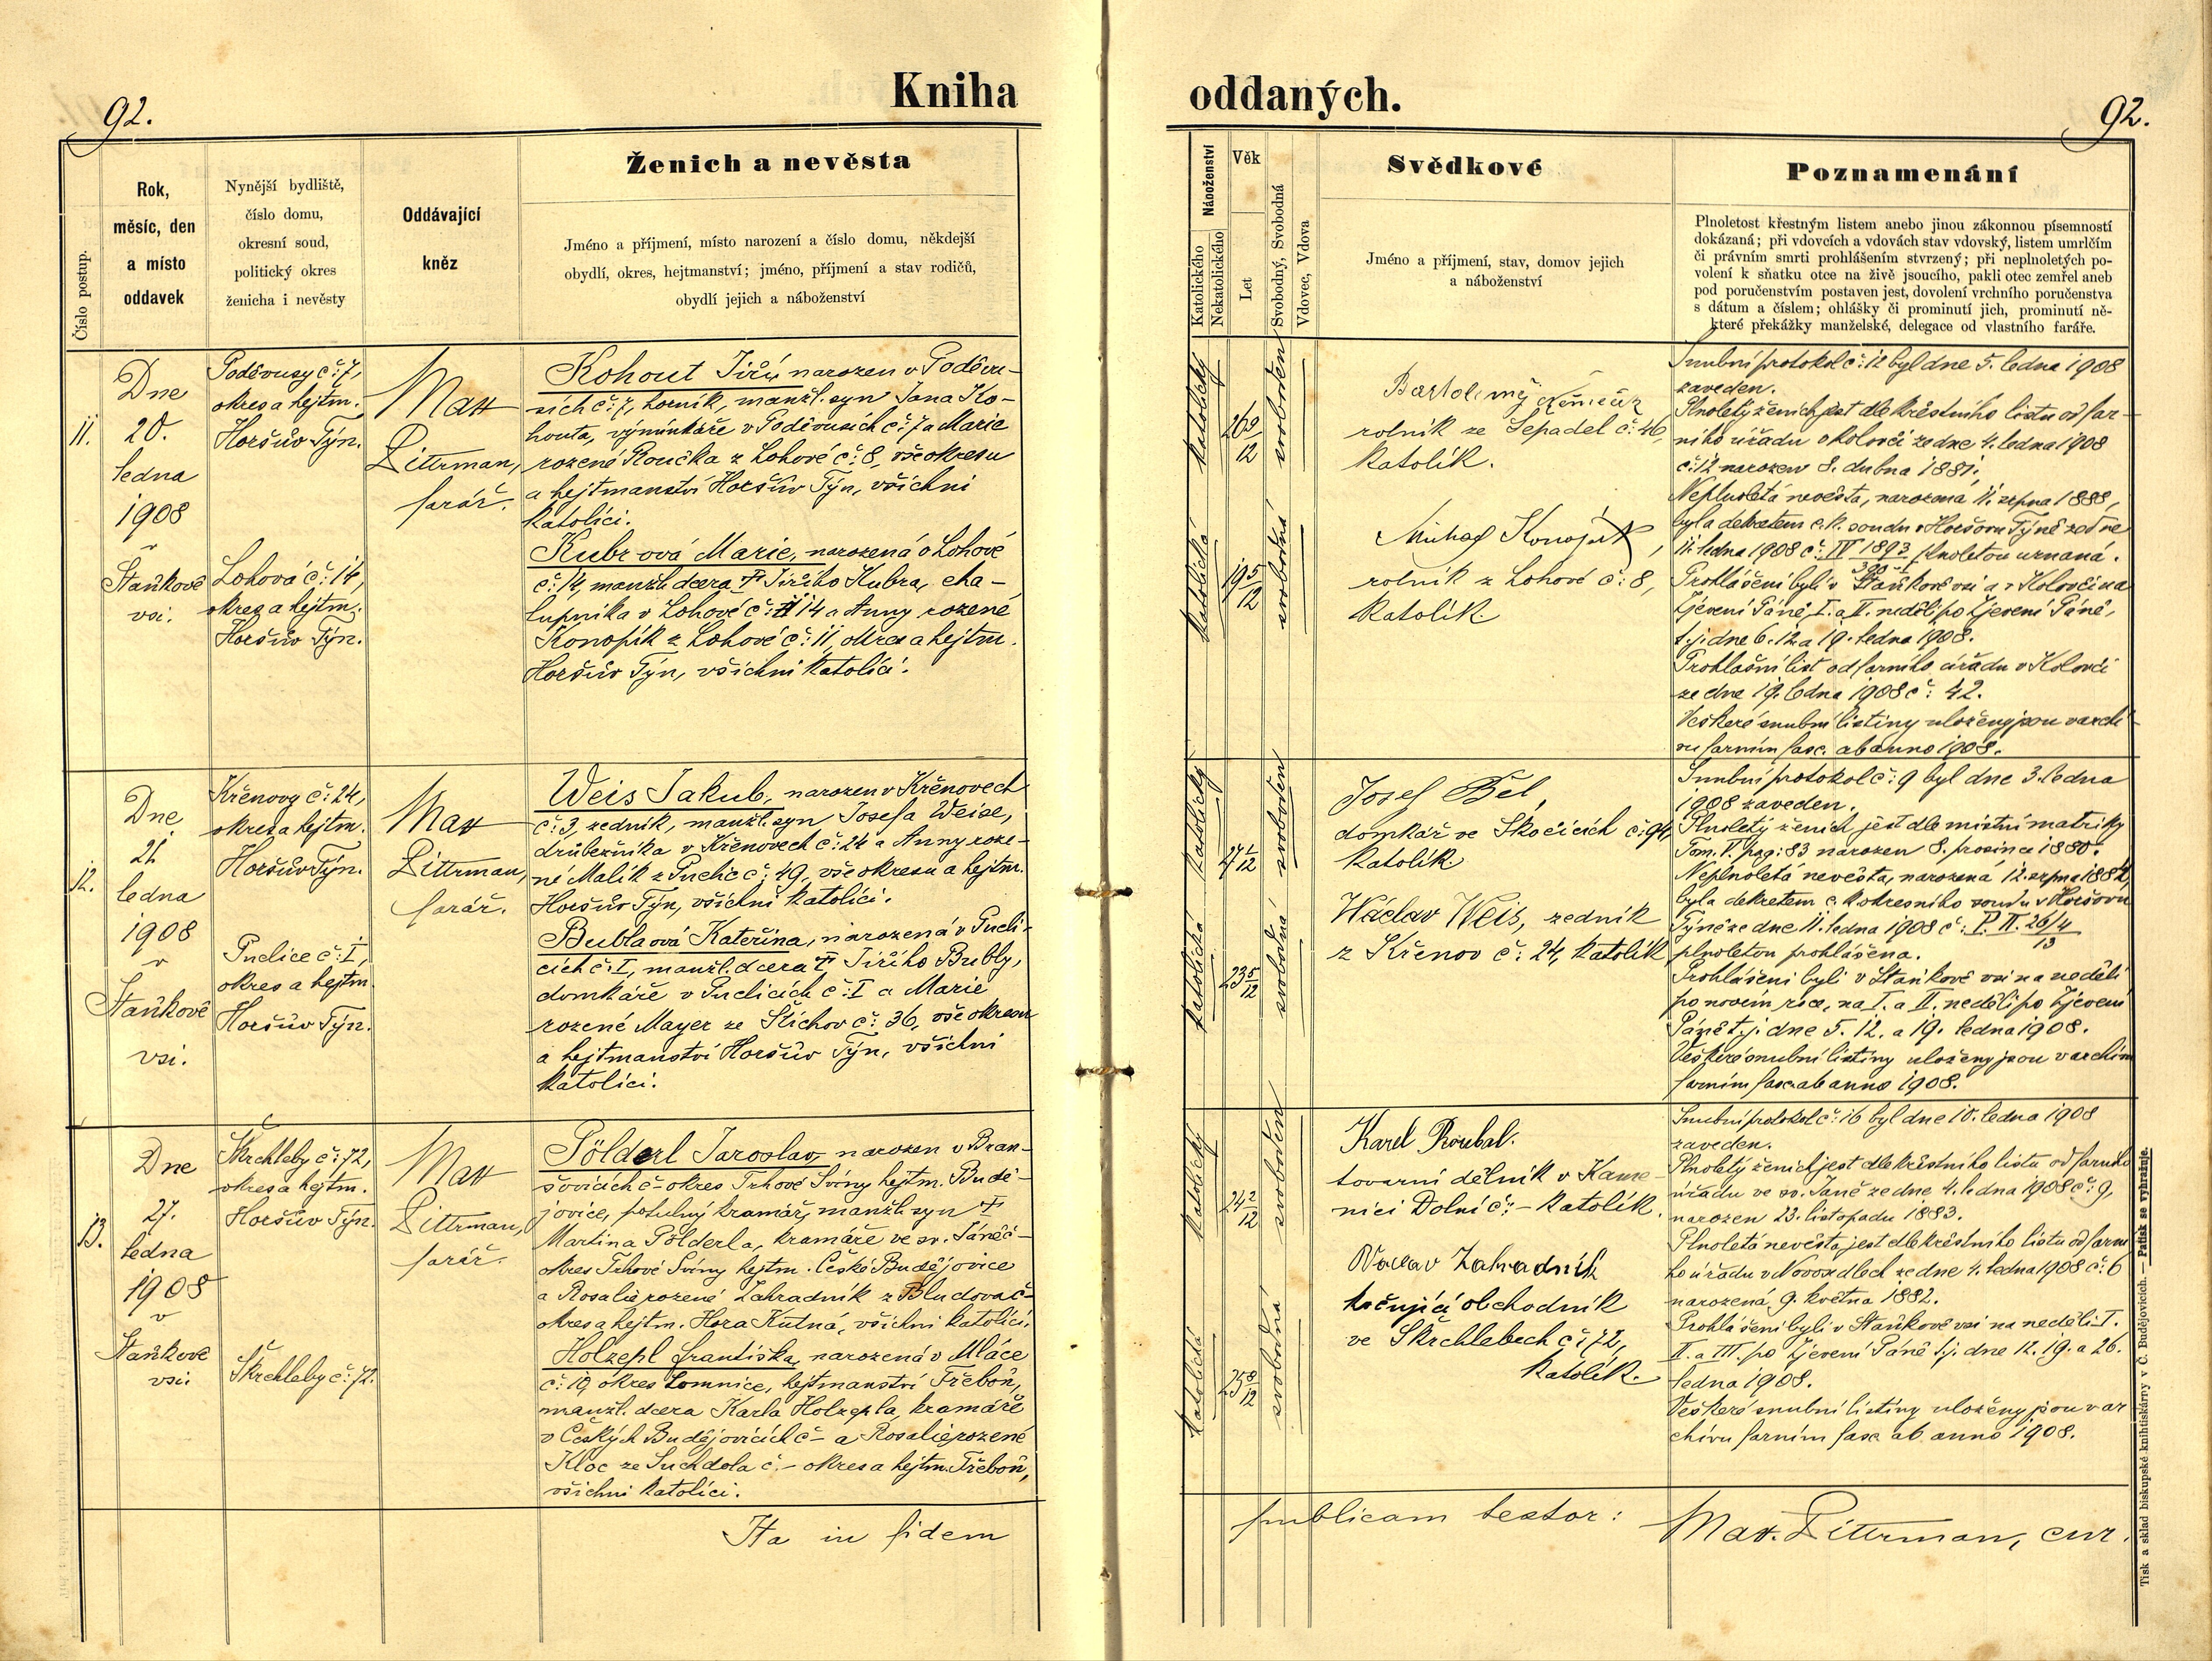 Kniha
oddaných.
92.
92.
Číslo postup.
Rok,
měsíc, den
a místo
oddavek
Nynější bydliště,
číslo domu,
okresní soud,
politický okres
ženicha i nevěsty
Oddávající
kněz
Ženich a nevěsta
Jméno a příjmení, místo narození a číslo domu, někdejší
obydlí, okres, hejtmanství; jméno, příjmení a stav rodičů,
obydlí jejich a náboženství
Náboženství
Katolického
Nekatolického
Věk
Let
Svobodný, Svobodná
Vdovec, Vdova
Svědkové
Jméno a příjmení, stav, domov jejich
a náboženství
Poznamenání
Plnoletost křestným listem anebo jinou zákonnou písemností
dokázaná; při vdovcích a vdovách stav vdovský, listem umrlčím
či právním smrti prohlášením stvrzený; při neplnoletých po-
volení k sňatku otce na živě jsoucího, pakli otec zemřel aneb
pod poručenstvím postaven jest, dovolení vrchního poručenstva
s dátum a číslem; ohlášky či prominutí jich, prominutí ně-
které překážky manželské, delegace od vlastního faráře.
11.
Dne
20.
ledna
1908
v
Staňkově
vsi.
Poděvusy č: 7,
okres a hejtm.
Horšův Týn.
Lohová č: 14,
okres a hejtm.
Horšův Týn.
Mat
Dittrman,
farář.
Kohout Jiří, narozen v Poděvu-
sích č: 7, horník, manžl. syn Jana Ko-
houta, výminkáře v Poděvusích č: 7 a Marie
rozené Roučka z Lohové č: 8, vše okresu
a hejtmanství Horšův Týn, všichni
katolíci.
Kubr ová Marie, narozená v Lohové
č: 14, manžl. dcera † Jiřího Kubra, cha-
lupníka v Lohové č: 14 a Anny rozené
Konopík z Lohové č: 11, okres a hejtm.
Horšův Týn, všichni katolíci.
katolický
26 9/12
svoboden
katolická
19 5/12
svobodná
Bartoloměj
rolník ze Sepadel č: 46,
katolík.
Konopík,
rolník z Lohové č: 8,
katolík.
Snubní protokol č: 12 byl dne 5. ledna 1908
zaveden.
Plnoletý ženich jest dle křestního listu od far-
ního úřadu v Kolovči ze dne 4. ledna 1908
č: 12 narozen 8. dubna 1881.
Neplnoletá nevěsta, narozená 11. srpna 1888,
byla dekretem c. k. soudu v Horšovu Týně ze dne
11. ledna 1908 č: IV 1893 plnoletou uznaná.
Prohlášeni byli v Staňkově vsi a v Kolovči na
Zjevení Páně, I. a II. neděli po Zjevení Páně,
t. j. dne 6. 12. a 19. ledna 1908.
Prohlašní list od farního úřadu v Kolovči
ze dne 19. ledna 1908 č: 42.
Veškeré snubní listiny uloženy jsou v archi-
vu farním fasc. ab anno 1908.
12.
Dne
21.
ledna
1908
v
Staňkově
vsi.
Křenovy č: 24,
okres a hejtm.
Horšův Týn.
Puclice č: I,
okres a hejtm.
Horšův Týn.
Mat
Dittrman,
farář.
Weis Jakub, narozen v Křenovech
č: 3, zedník, manžl. syn Josefa Weise,
drůbežníka v Křenovech č: 24 a Anny roze-
né Malík z Puclic č: 49, vše okresu a hejtm.
Horšův Týn, všichni katolíci.
Bublaová Kateřina, narozená v Pucli-
cích č: I, manžl. dcera † Jiřího Bubly,
domkáře v Puclicích č: I a Marie
rozené Mayer ze Štichov č: 36, vše okresu
a hejtmanství Horšův Týn, všichni
katolíci.
katolický
27 1/12
svoboden
katolická
23 5/12
svobodná
Josef Bel,
domkář ve Skočicích č: 94,
katolík.
Wáclav Weis, zedník
z Křenov č: 24, katolík
Snubní protokol č: 9 byl dne 3. ledna
1908 zaveden.
Plnoletý ženich jest dle místní matriky
Tom. V. pag: 83 narozen 8. prosince 1880.
Neplnoletá nevěsta, narozená 12. srpna 1884,
byla dekretem c. k. okresního soudu v Horšovu
Týně ze dne 11. ledna 1908 č: P. II. 26/4
13
plnoletou prohlášena.
Prohlášeni byli v Staňkově vsi na neděli
po novém roce, na I. a II. neděli po Zjevení
Páně t. j. dne 5. 12. a 19. ledna 1908.
Veškeré snubní listiny uloženy jsou v archivu
farním fasc. ab anno 1908.
13.
Dne
27.
ledna
1908
v
Staňkově
vsi.
Škrchleby č: 72,
okres a hejtm.
Horšův Týn.
Škrchleby č: 72.
Mat
Dittrman,
farář.
Pölderl Jaroslav, narozen v Bran-
šovicích č- okres Trhové Sviny hejtm. Budě-
jovice, potulný kramář, manžl. syn †
Martina Pölderla, kramáře ve sv. Jáně č-
okres Trhové Sviny hejtm. České Budějovice
a Rosalie rozené Zahradník z Bludova č-
okres a hejtm. Hora Kutná, všichni katolíci.
Holzepl Františka, narozená v Mláce
č: 19 okres Lomnice, hejtmanství Třeboň,
manžl. dcera Karla Holzepla, kramáře
v Českých Budějovicích č- a Rosalie rozené
Kloc ze Suchdola č.- okres a hejtm. Třeboň,
všichni katolíci.
katolický
24 2/12
svoboden
katolická
25 8/12
svobodná
Karel Roubal.
tovarní dělník v Kame-
nici Dolní č: - katolík.
Václav Zahradník
kočující obchodník
ve Škrchlebech č: 72,
katolík.
Snubní protokol č: 16 byl dne 10. ledna 1908
zaveden.
Plnoletý ženich jest dle křestního listu od farního
úřadu ve sv. Janě ze dne 4. ledna 1908 č: 9,
narozen 23. listopadu 1883.
Plnoletá nevěsta jest dle křestního listu od farní
ho úřadu v Novosedlech ze dne 4. ledna 1908 č: 6
narozená 9. května 1882.
Prohlášeni byli v Staňkově vsi na neděli I.
II. a III. po Zjevení Páně t. j. dne 12. 19. a 26.
ledna 1908.
Veškeré snubní listiny uloženy jsou v ar
chivu farním fasc. ab anno 1908.
Ita in fidem
publicam testor:
Mat. Dittrman, cur.
Tisk a sklad biskupské knihtiskárny v Č. Budějovicích. — Patisk se vyhražuje.